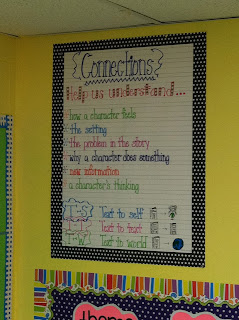 Connections
Help us understand...
- how a character feels
- the setting
- the problem in the story
- why a character does something
- new information
- a character's thinking
T-S Text to self
T-T Text to text
T-W Text to world
theme